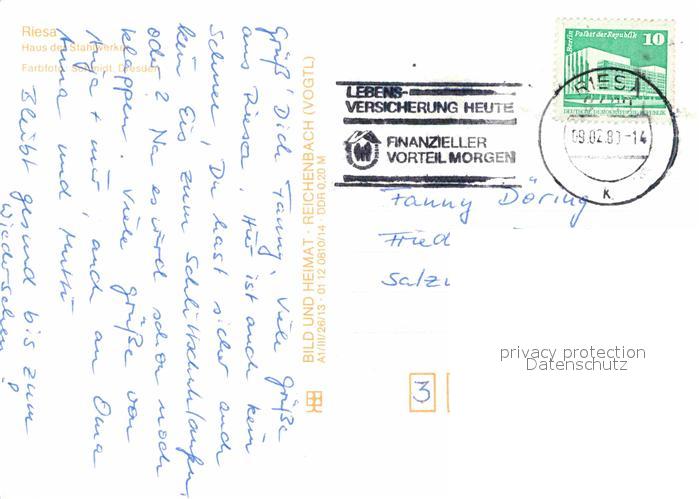 Riesa
Haus der Stahlwerker
Farbfoto: Schmidt, Dresden
Grüß' Dich Fanny, viele Grüße
aus Riesa. Hier ist auch kein
Schnee, Du hast sicher auch
kein Eis zum Schlittschuhlaufen,
oder? Na es wird schon noch
klappen. Viele Grüße von
Anje + mir, auch an Oma
Anna und Mutti
Bleibt gesund bis zum
Wiedersehen!
BILD UND HEIMAT · REICHENBACH (VOGTL)
A1/III/26/13 · 01 12 0810/14 · DDR 0,20 M
LEBENS-
VERSICHERUNG HEUTE
FINANZIELLER
VORTEIL MORGEN
Berlin Palast der Republik
10
DEUTSCHE DEMOKRATISCHE REPUBLIK
RIESA
09.02.8 -14
K
Fanny Döring
Fried
Salz
3
privacy protection
Datenschutz